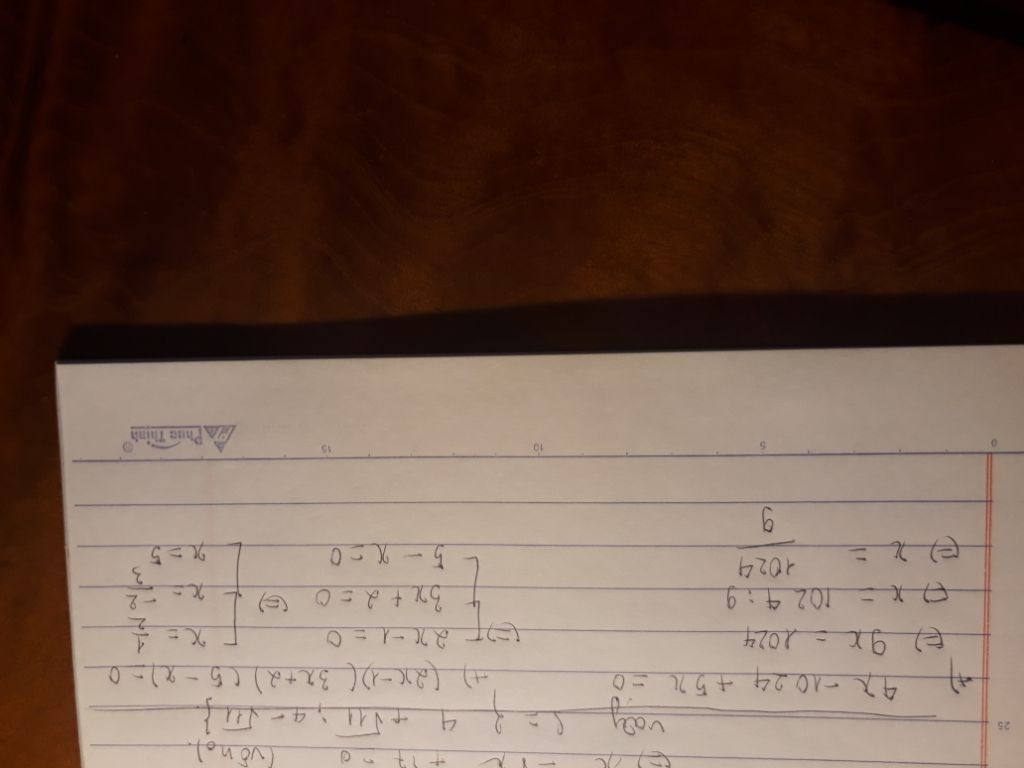 (=) x - 8x + 17 = 0 (vô no).
Vậy S = { 4 + √11 ; 4 - √11 }
25
+) 4x - 1024 + 5x = 0
(=) 9x = 1024
(=) x = 1024 : 9
(=) x = 1024/9
+) (2x-1)(3x+2)(5-x) = 0
(=) [ 2x - 1 = 0
3x + 2 = 0
5 - x = 0
(=) [ x = 1/2
x = -2/3
x = 5
0 5 10 15
Phúc Thịnh ®